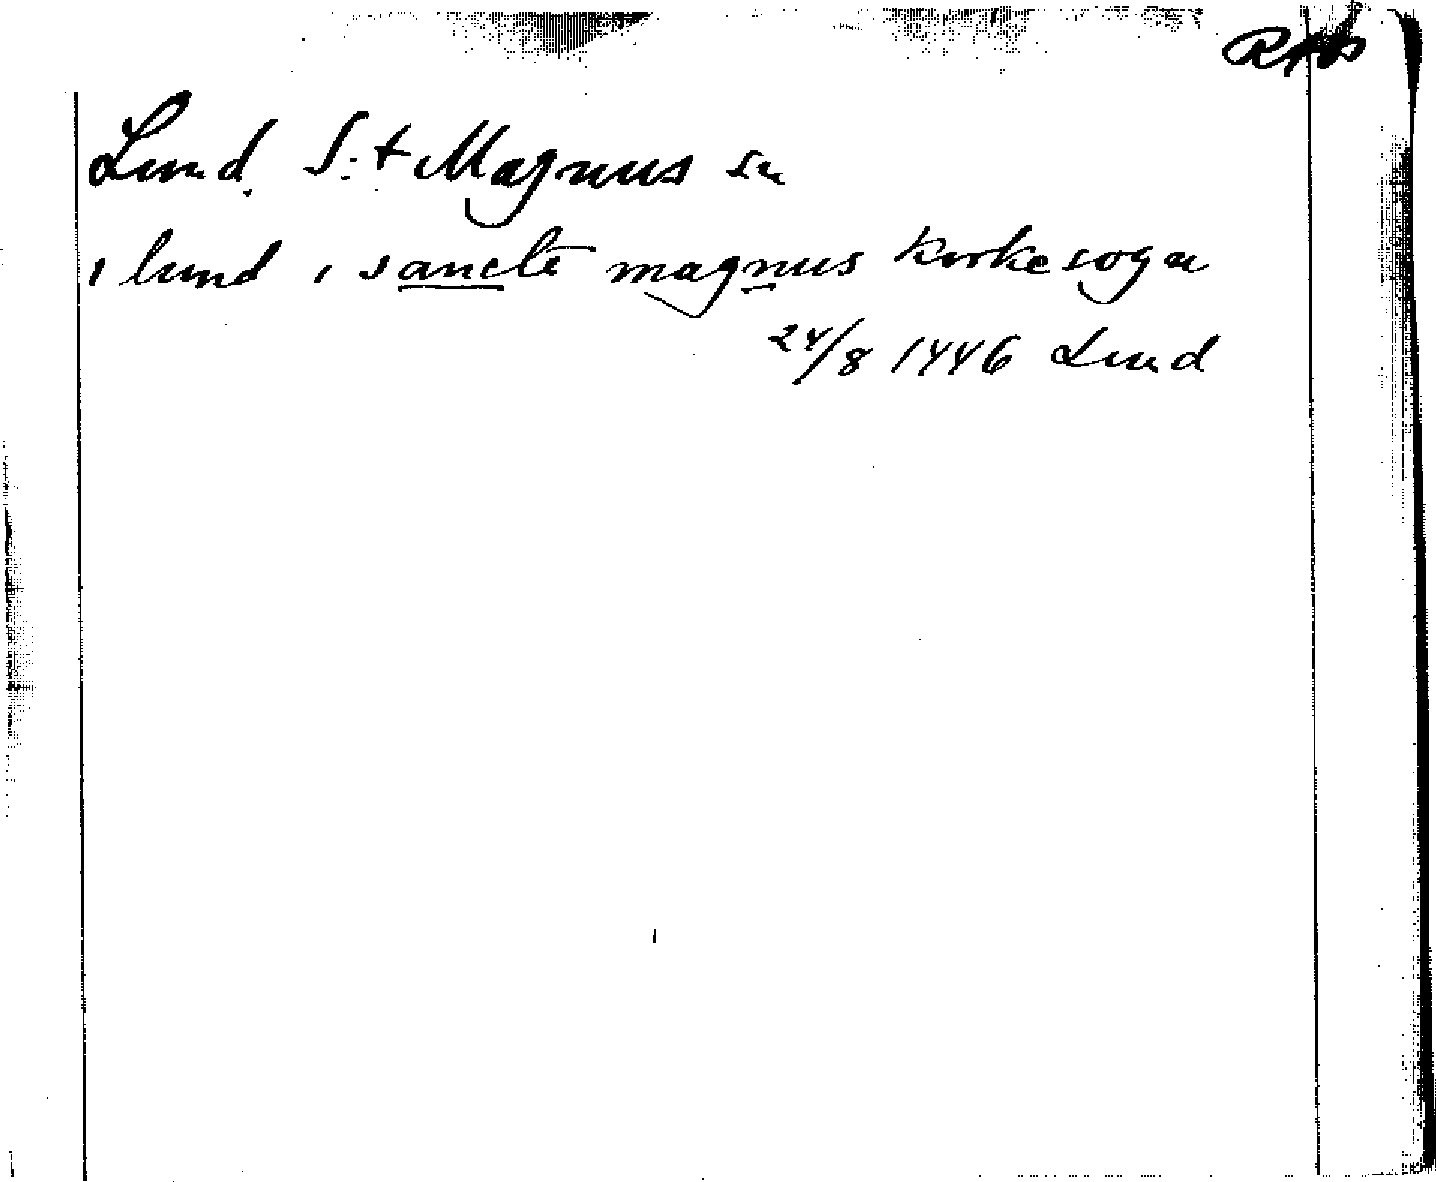 Lund. S:t Magnus sn
i lund i sancte magnus kirke sogn
24/8 1446 Lund